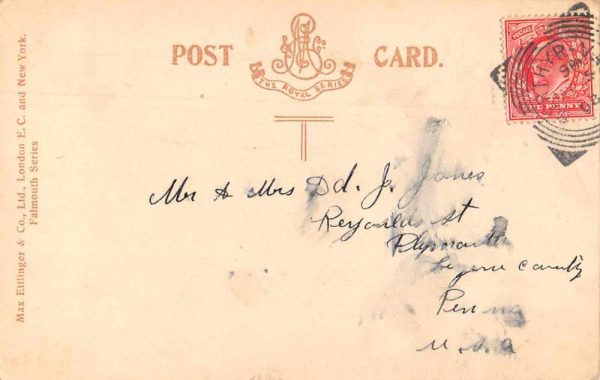 POST CARD.
THE ROYAL SERIES
ONE PENNY
Max Ettlinger & Co., Ltd., London E. C. and New York.
Falmouth Series
Mr & Mrs Dd. J. Jones
Reynolds st
Plymouth
county
Penna
U.S.A